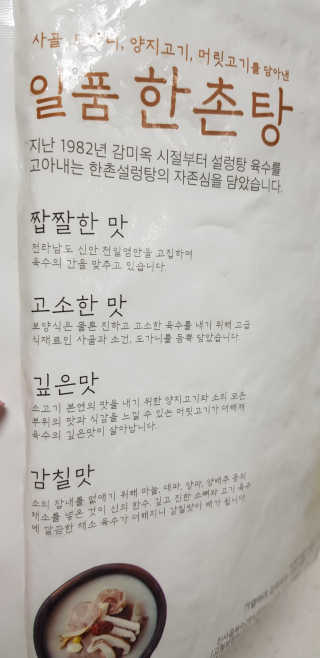 사골, 도가니, 양지고기, 머릿고기를 담아낸
일품 한촌탕
지난 1982년 감미옥 시절부터 설렁탕 육수를
고아내는 한촌설렁탕의 자존심을 담았습니다.
짭짤한 맛
전라남도 신안 천일염만을 고집하여
육수의 간을 맞추고 있습니다
고소한 맛
보양식은 물론 진하고 고소한 육수를 내기 위해 고급
식재료인 사골과 소건, 도가니를 듬뿍 담았습니다
깊은맛
소고기 본연의 맛을 내기 위한 양지고기와 소의 모든
부위의 맛과 식감을 느낄 수 있는 머릿고기가 더해져
육수의 깊은맛이 살아납니다.
감칠맛
소의 잡내를 없애기 위해 마늘, 대파, 양파, 양배추 등의
채소를 넣은 것이 신의 한수. 깊고 진한 소뼈와 고기 육수
에 깔끔한 채소 육수가 더해지니 감칠맛이 배가 됩니다